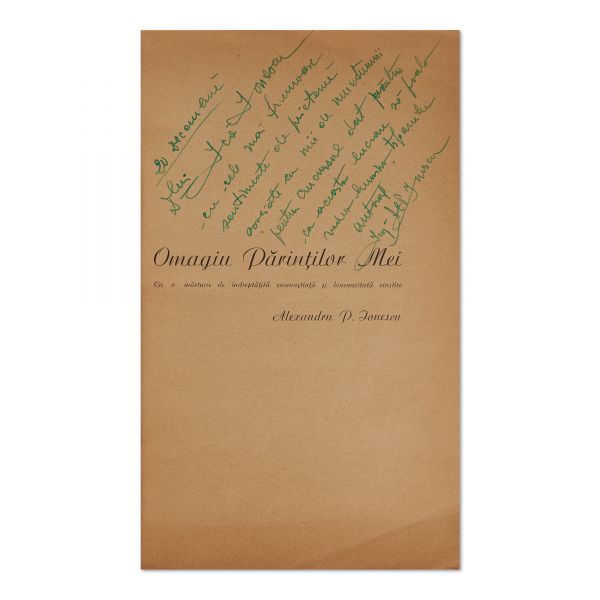 20 decembrie
D-lui Ionescu
cu cele mai frumoase
sentimente de prietenie
asociate cu mii de mulțumiri
pentru concursul dat pentru
ca această lucrare să poată
vedea lumina tiparului
autorul
Ing. Al. P. Ionescu
Omagiu Părinților Mei
Ca o mărturie de îndreptățită recunoștință și binemeritată cinstire
Alexandru P. Ionescu